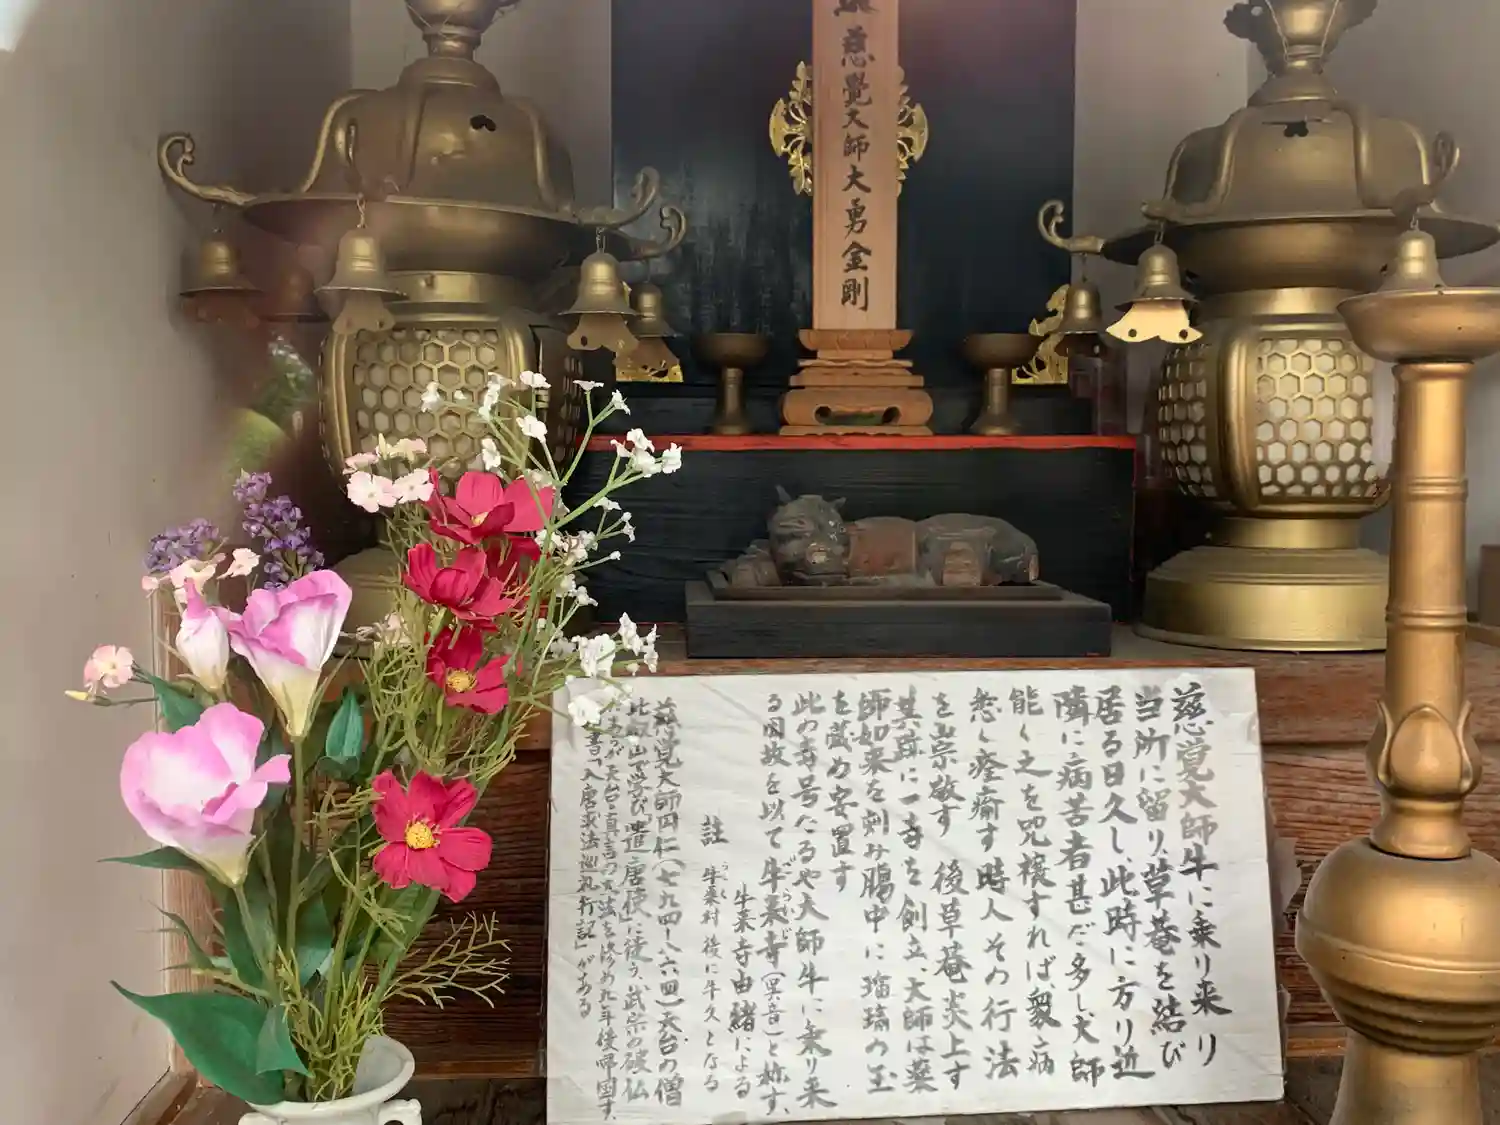 慈覺大師大勇金剛
慈覚大師牛に乗り来り
当所に留り草菴を結び
居る日久し、此時に方り近
隣に病苦者甚だ多し大師
能く之を咒穣すれば、衆病
悉く痊癒す 時人その行法
を崇敬す 後草菴炎上す
其跡に一寺を創立、大師は薬
師如来を刻み腸中に瑠璃の玉
を蔵め安置す
此の寺号たるや大師牛に乗り来
る因故を以て牛来寺(呉音)と称す、
ごらいじ
牛来寺由緒による
註
牛来村 後に牛久となる
慈覚大師円仁(七九四-八六四)天台の僧
比叡山で学び「遣唐使」に従う、武宗の破仏
にあうが天台真言の大法を修め九年後帰国す、
著書「入唐求法巡礼行記」がある